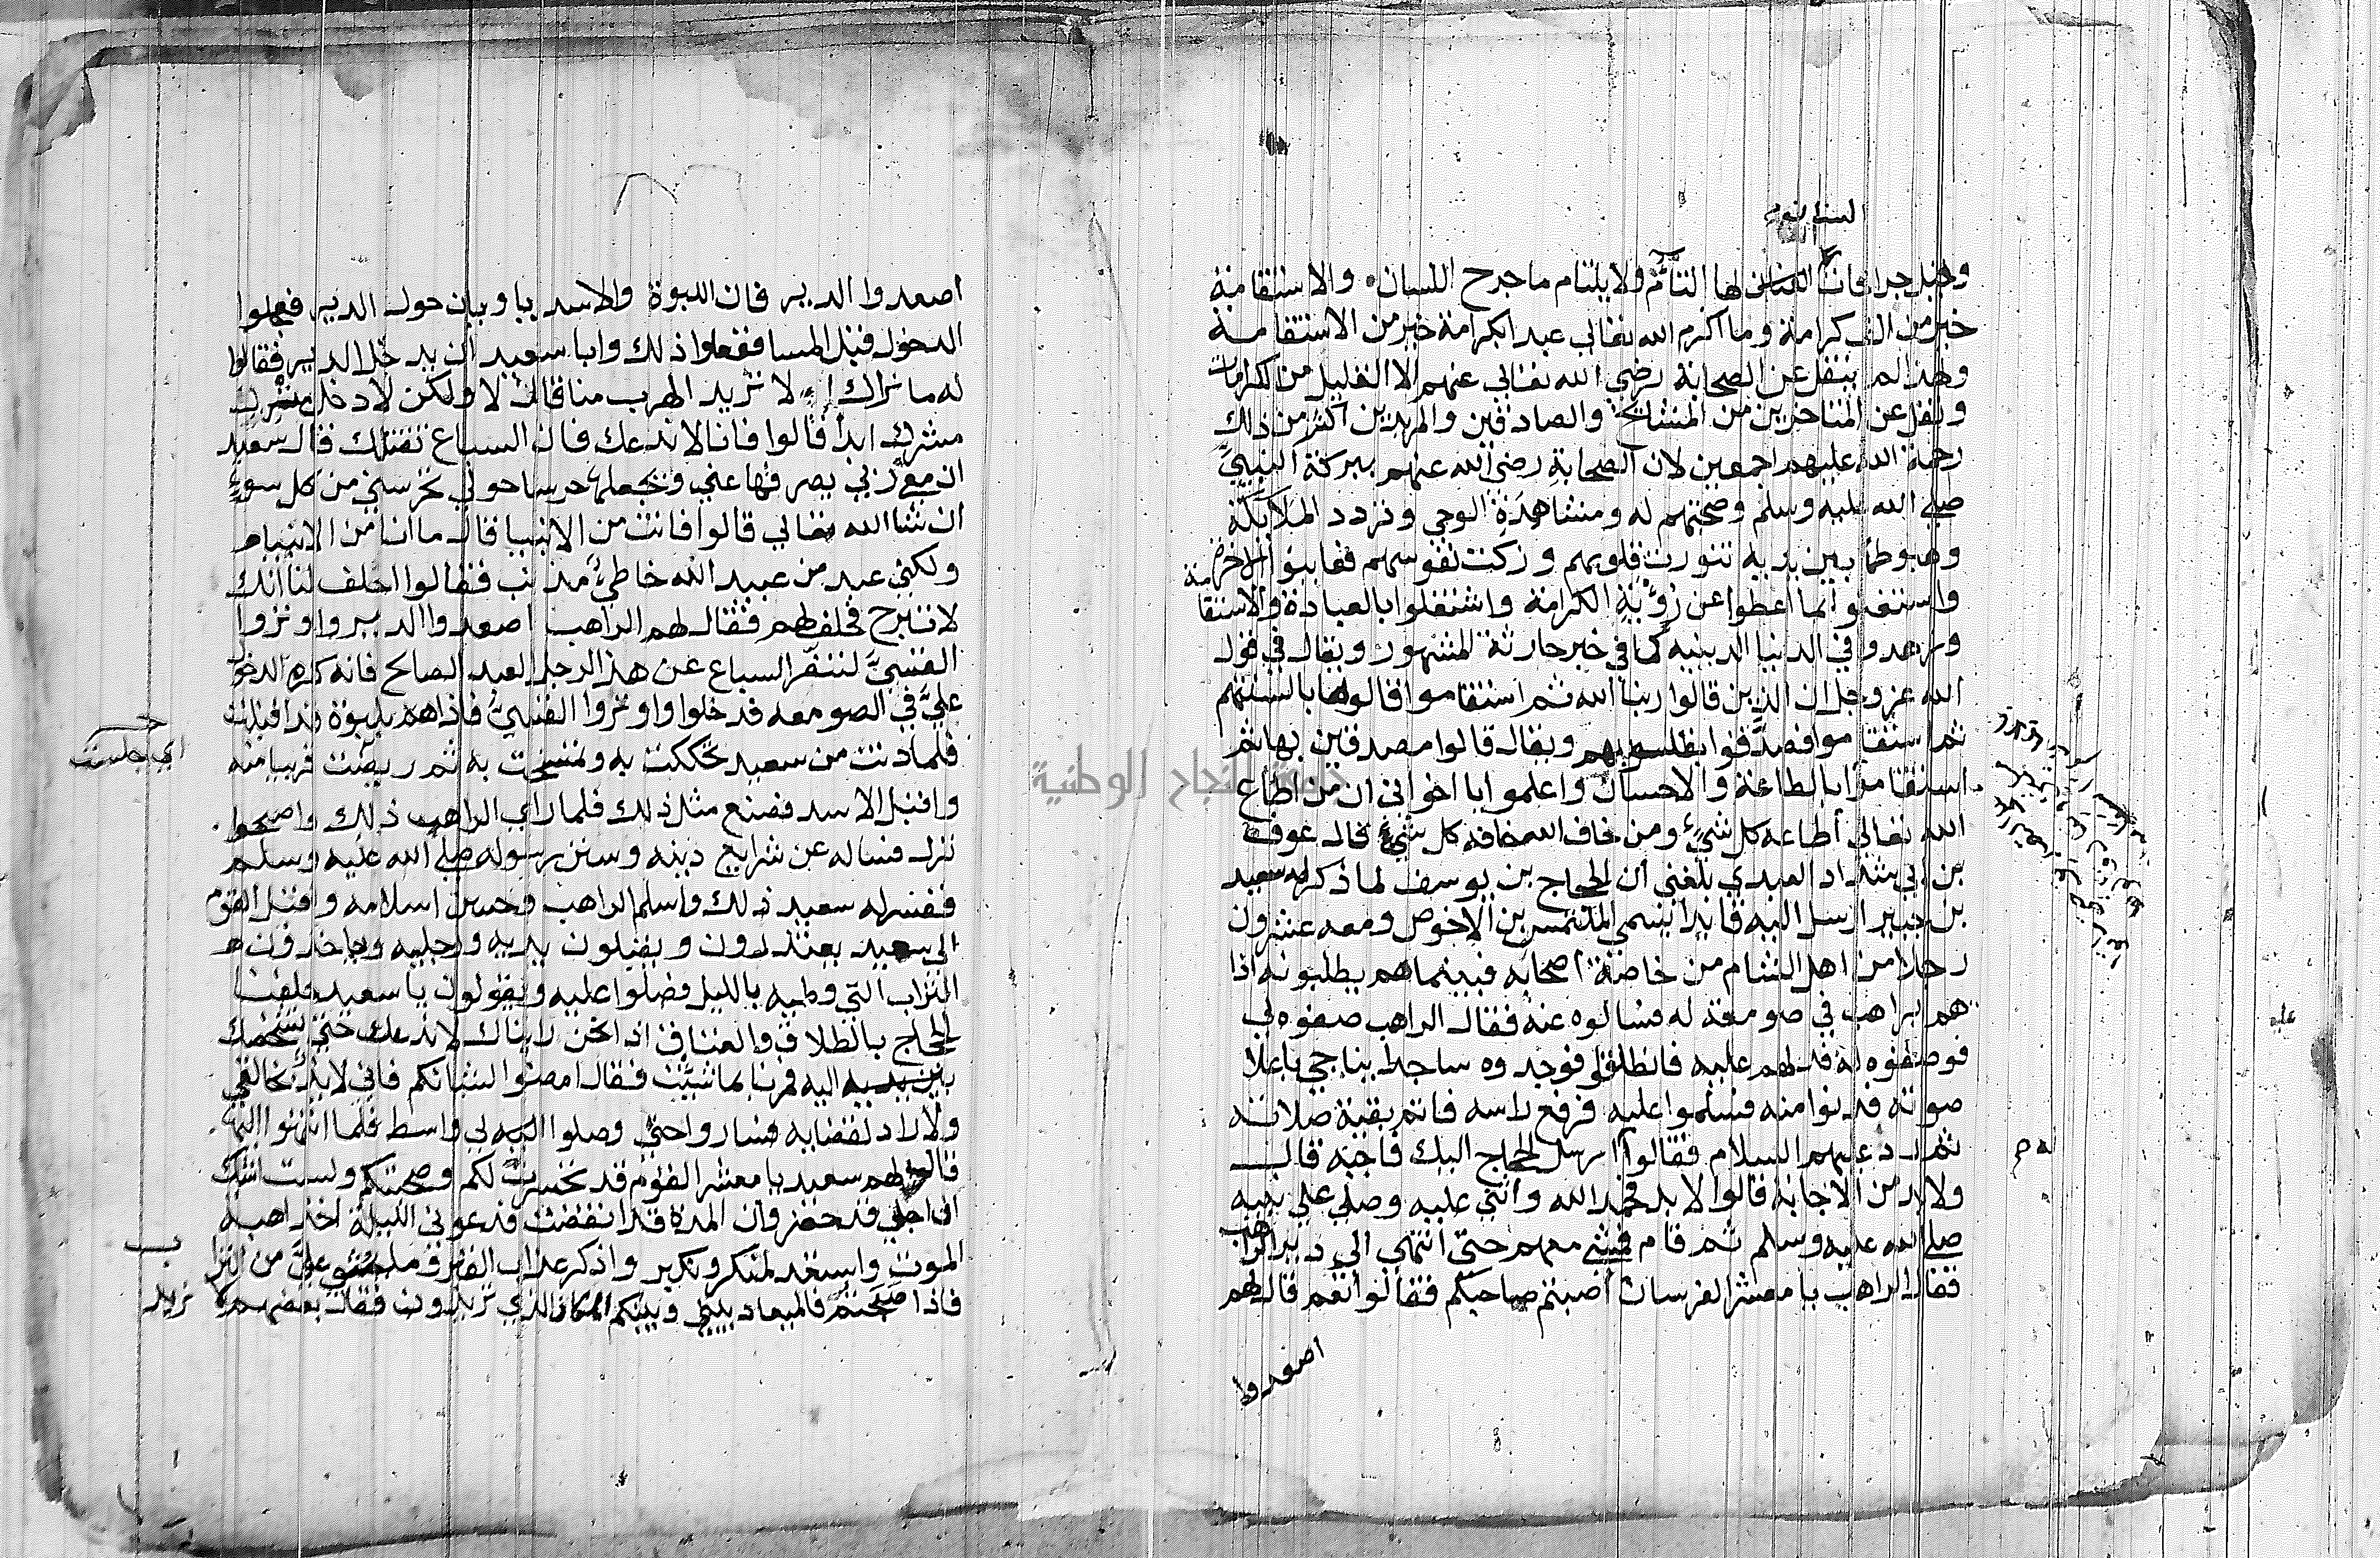 وقيل جراحات السنان لها التئام ولا يلتام ما جرح اللسان والاستقامة
خير من الف كرامة وما اكرم الله تعالى عبدا بكرامة خير من الاستقامة
ولهذا لم ينقل عن الصحابة رضي الله تعالى عنهم الا القليل من الكرامات
ونقل عن المتاخرين من المشايخ والصادقين والمريدين اكثر من ذلك
رحمة الله عليهم اجمعين لان الصحابة رضي الله عنهم ببركة النبي
صلى الله عليه وسلم وصحبتهم له ومشاهدة الوحي وتردد الملايكة
وهبوطها بين يديه تنورت قلوبهم وزكت نفوسهم فعاينوا الاخرة
واستغنوا بما اعطوا عن رؤية الكرامة واشتغلوا بالعبادة والاستقامة
وزهدوا في الدنيا الدنيه كما في خبر حارثة المشهور ويقال في قول
الله عز وجل ان الذين قالوا ربنا الله ثم استقاموا قالوها بالسنتهم
ثم استقاموا فصدقوا بقلوبهم ويقال قالوا مصدقين بها ثم
استقاموا بالطاعة والاحسان واعلموا يا اخواني ان من اطاع
الله تعالى أطاعه كل شيء ومن خاف الله خافه كل شيء قال عوف
بن ابي شداد العبدي بلغني أن الحجاج بن يوسف لما ذكر له سعيد
بن جبير ارسل اليه قايدا يسمي المتلمس بن الاخوص ومعه عشرون
رجلا من اهل الشام من خاصة اصحابه فبينما هم يطلبونه اذا
هم براهب في صومعة له فسالوه عنه فقال الراهب صفوه لي
فوصفوه له فدلهم عليه فانطلقوا فوجدوه ساجدا يناجي باعلا
صوته فدنوا منه فسلموا عليه فرفع راسه فاتم بقية صلاته
ثم رد عليهم السلام فقالوا أرسل الحجاج اليك فاجبه قال
ولا بد من الاجابة قالوا لا بد فحمد الله واثني عليه وصلي على نبيه
صلى الله عليه وسلم ثم قام فمشى معهم حتى انتهى الى دير الراهب
فقال الراهب يا معشر الفرسان أصبتم صاحبكم فقالوا نعم قال لهم
اصعدوا
اصعدوا الدير فان اللبوة والاسد ياويان حول الدير فعجلوا
الدخول قبل المسا ففعلوا ذلك وابا سعيد ان يدخل الدير فقالوا
له ما نراك الا تريد الهرب منا قال لا ولكن لا ادخل منزل
مشرك ابدا قالوا فانا لا ندعك فان السباع تقتلك قال سعيد
ان معي ربي يصرفها عني ويجعلها حرسا حولي تحرسني من كل سوء
ان شا الله تعالى قالوا فانت من الانبيا قال ما أنا من الانبياء
ولكني عبد من عبيد الله خاطئ مذنب فقالوا احلف لنا أنك
لا تبرح فحلف لهم فقال لهم الراهب اصعدوا الدير واوتروا
القسي لتنفر السباع عن هذا الرجل العبد الصالح فانه كره الدخول
علي في الصومعه فدخلوا واوتروا القسي فاذا هم بلبوة قد اقبلت
فلما دنت من سعيد تحككت به وتمسحت به ثم ربضت قريبا منه
اي جلست
واقبل الاسد فصنع مثل ذلك فلما راي الراهب ذلك واصبحوا
نزل فساله عن شرايع دينه وسنن رسوله صلى الله عليه وسلم
ففسر له سعيد ذلك واسلم الراهب وحسن اسلامه واقبل القوم
الى سعيد يعتذرون ويقبلون يديه ورجليه وياخذون
التراب التي وطيه بالليل فصلوا عليه ويقولون يا سعيد حلفنا
الحجاج بالطلاق والعتاق اذا نحن رايناك لا ندعك حتى نشخصك
بين يديه اليه فمرنا بما شيت فقال امضوا لشانكم فاني لايذ بخالقي
ولا راد لقضايه فساروا حتى وصلوا الي واسط فلما انتهوا اليها
قال لهم سعيد يا معشر القوم قد تحرمت لكم وصحبتكم ولست اشك
ان اجلي قد حضر وان المدة قد انقضت فدعوني الليلة اخذ اهبة
الموت واستعد لمنكر ونكير واذكر عذاب القبر وما يحثى علي من التراب
فاذا اصبحتم فالميعاد بيني وبينكم المكان الذي تريدون فقال بعضهم لا نريد